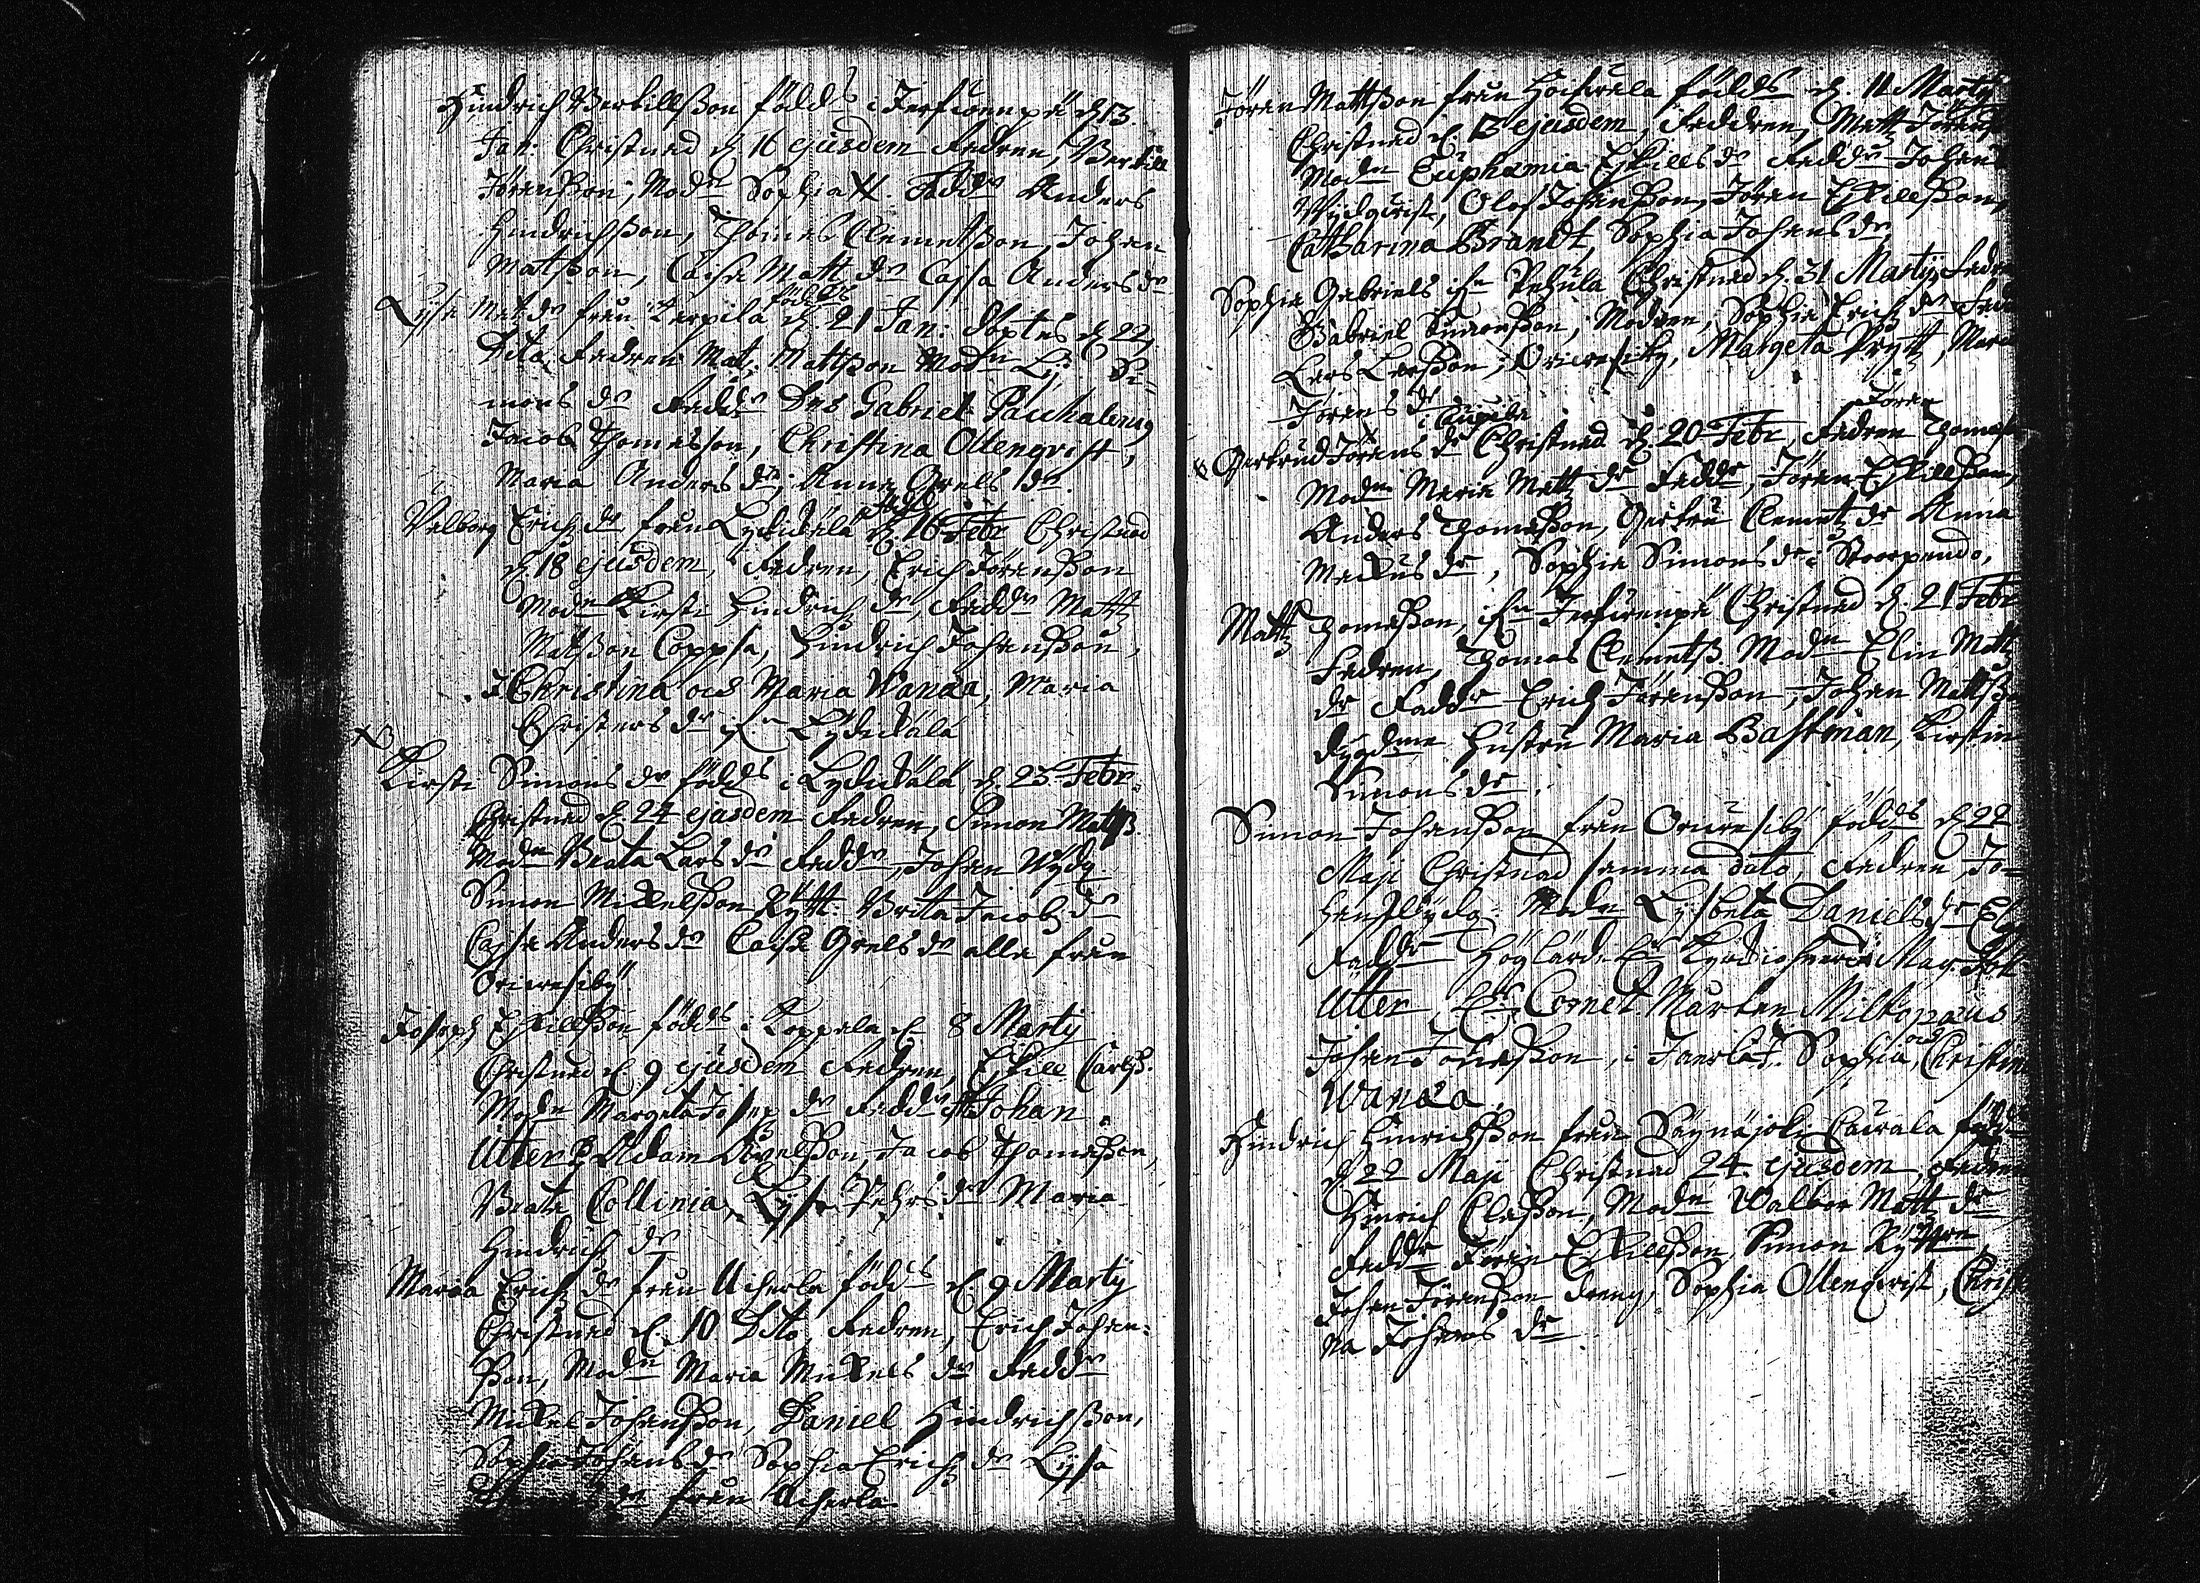 Hindrich Bertillsson född i Jerfwenpä d 13.
Jan: Christnad d 16 ejusdem Fadren, Bertill
Jöransson, Modn Sophia Faddr Anders
Hindrichsson, Thomas Clemetsson, Johan
Matsson, Caisa Matt dr Cajsa Anders dr
Lysa Mats dr från Terpila född d. 21 Jan: döptes d 22
Dito, Fadren Mat: Mattsson Modn Si=
mons dr Faddr Dns Gabriel Paschalenus
Jacob Thomasson, Christina Ollenqvist,
Maria Anders dr, Anna Grels dr
Valborg Erichs dr från Lydikälä född d. 16 Febr Christnad
d 18 ejusdem, Fadren, Erich Jöransson
Modn Kirsti Hindrich dr, Faddr Matt
Matsson Coppsa, Hindrich Johansson,
J. Christina och Maria Wanaa, Maria
Christers dr ifn Lydikälä
Kirsti Simons dr född i Lydikälä d. 23 Febr.
Christnad d. 24 ejusdem Fadren, Simon Mattss.
Modn Beata Lars dr Faddr, Johan Wydq
Simon Mickelsson Rytt: Brita Jacobs dr
Cajsa Anders dr Caisa Grels dr alla från
Oriwesiby
Joseph Eskillsson född i Koppela d 8 Martij
Christnad d 9 ejusdem Fadren, Eskill Carlss.
Modn Margeta Josep dr Faddr Johan
Utter, Adam Axelsson, Jacob Thomasson,
Beata Collinia, Lysa Pehrs dr Maria
Hindrich dr
Maria Erichs dr från Ucherla född d 9 Martij
Christnad d. 10 Dito, Fadren, Erich Johan=
sson, Modn Maria Mickels dr Faddr
Mickel Johansson, Daniel Hindrichsson,
Sophia Johans dr Sophia Erichs dr Lysa
dr från Ucherla
Jöran Mattsson från född d. 11 Martij
Christnad d. 13 ejusdem, Fadren, Matt Jörans
Modn Euphæmia Eskills dr Faddr Johan
Wydqvist, Olof Johansson, Jöran Eskillsson,
Catharina Brandt, Sophia Johans dr
Sophia Gabriels ifn Pehula Christnad d. 31 Martij, Fadren
Gabriel Simonsson, Modren, Sophia Erichs dr Faddr
Lars Larsson, Oriwesiby, Margeta Prytz, Maria
Jörans dr
Gertrud Jörans dr Christnad d. 20 Febr, Fadren Jöran Thomass
Modn Maria Matt dr Faddr, Jöran Eskillsson,
Anders Thomasson, Gertru Clemets dr Anna
Markus dr, Sophia Simons dr i Storpendo,
Matt Thomasson, ifn Jerfwenpä Christnad d. 21 Febr
Fadren, Thomas Clemetss. Modn Elin Matt
dr Faddr Erich Jöransson, Johan Mattsson
Hustru Maria Bastman, Kirstin
Simons dr.
Simon Johansson från Oriwesiby född d 22
Maji Christnad samma dato, Fadren, Jo=
han Wydq: Modn Lysbeta Daniels dr
Faddr Höglärde Hr Kyrckioherden Mag. Joh
Utter, Hr Cornet Mårten Miltopæus
Johan Jönsson, i J. Sophia, och Christina
Wanaa
Hindrich Hinrichsson från Säynäjoki Caurala född
d 22 Maji Christnad 24 ejusdem, Fadren
Hinrich Classon, Modn Walbor Matt dr
Faddr Jöran Eskillsson, Simon Ryttare
Johan Jöransson Dreng, Sophia Ollenqvist, Christi
na Johans dr